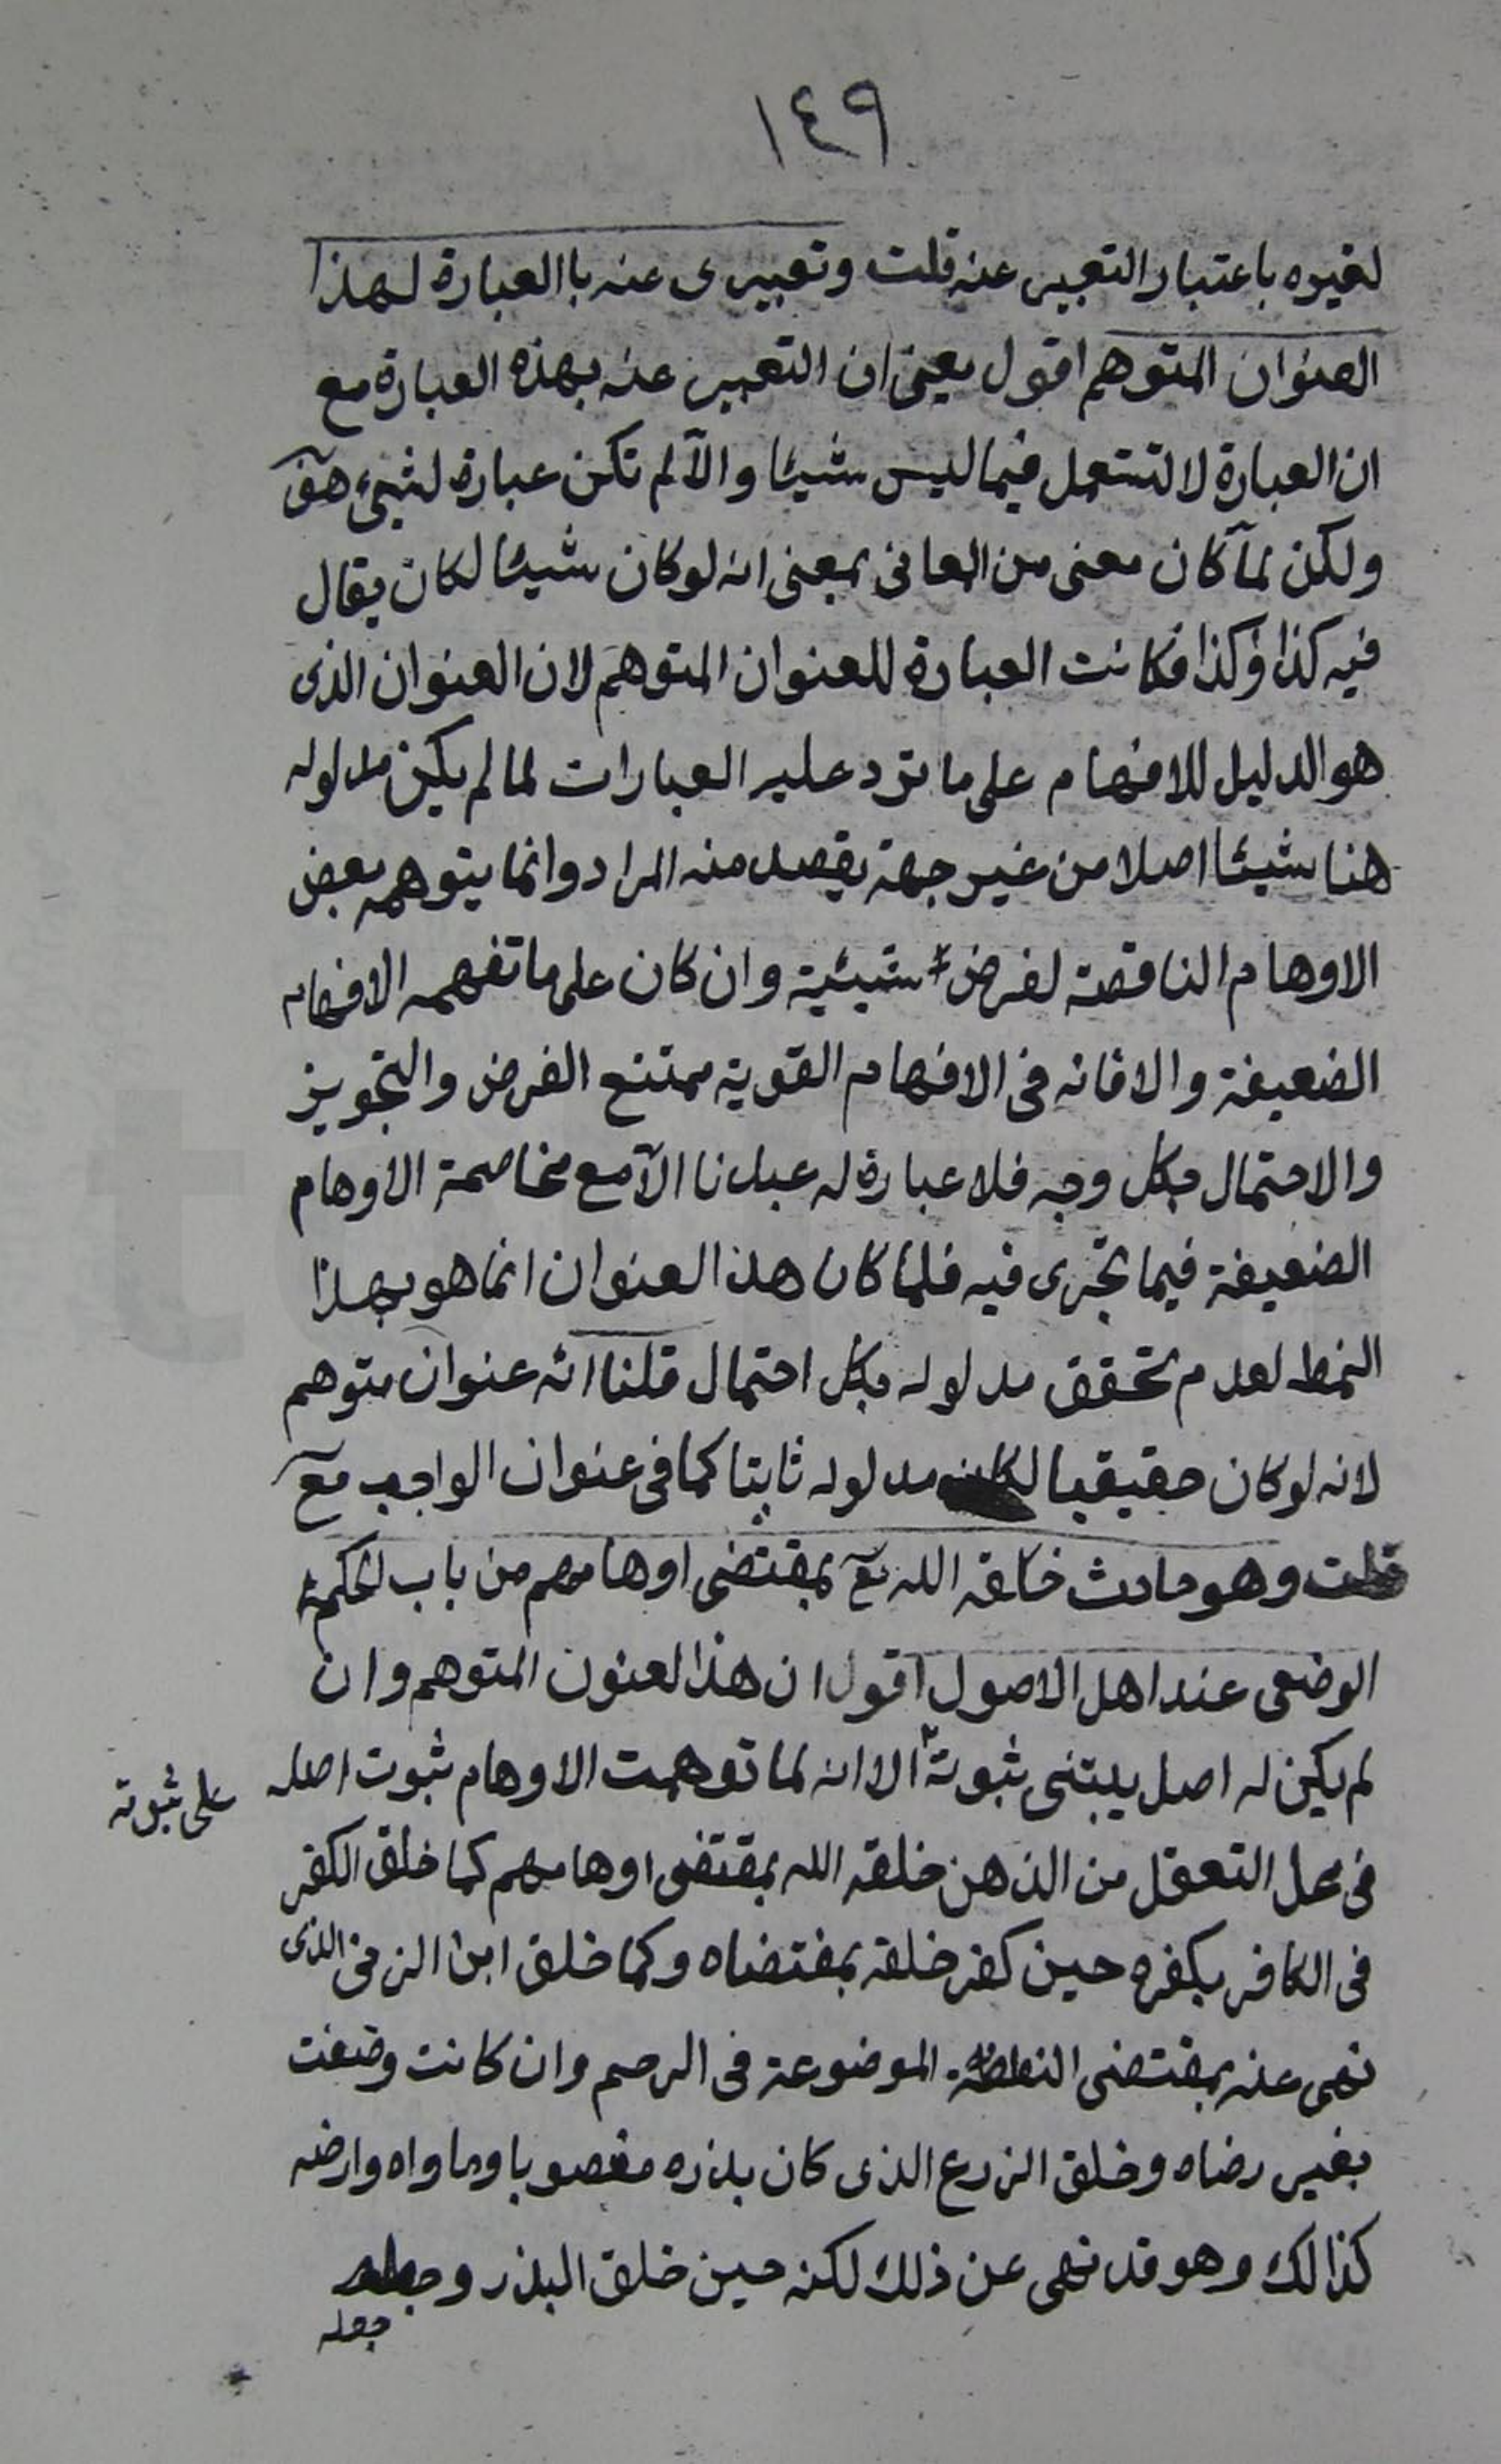 ١٤٩
لغيره باعتبار التعبير عنه قلت وتعبيرى عنه باالعبارة لهذا
العنوان المتوهم اقول يعنى ان التعبير عنه بهذه العبارة مع
ان العبارة لا تستعمل فيما ليس شيئا والّا لم تكن عبارة لشيء هفّ
ولكن لمّا كان معنى من المعانى بمعنى انه لو كان شيئا لكان يقال
فيه كذا وكذا فكانت العبارة للعنوان المتوهم لان العنوان الذى
هو الدليل للافهام على ما ترد عليه العبارات لما لم يكن مدلوله
هنا شيئا اصلا من غير جهة يقصد منه المراد وانما يتوهمه بعض
الاوهام الناقصة لفرض شيئية وان كان على ما تفهمه الافهام
الضعيفة والا فانه فى الافهام القوية ممتنع الفرض والتجويز
والاحتمال بكل وجه فلا عبارة له عندنا الّا مع مخاصمة الاوهام
الضعيفة فيما تجرى فيه فلما كان هذا العنوان انما هو بهذا
النمط لعدم تحقق مدلوله بكل احتمال قلنا انه عنوان متوهم
لانه لو كان حقيقيا لكان مدلوله ثابتا كما فى عنوان الواجب تع
قلت وهو حادث خلقه الله تع بمقتضى اوهامهم من باب الحكم
الوضعى عند اهل الاصول اقول ان هذا لعنون المتوهم وان
لم يكن له اصل يبتنى ثبوته الا انه لما توهمت الاوهام ثبوت اصله
على ثبوته
فى محل التعقل من الذهن خلقه الله بمقتضى اوهامهم كما خلق الكفر
فى الكافر بكفره حين كفر خلقه بمقتضاه وكما خلق ابن الزنى الذى
نهى عنه بمقتضى النطفة الموضوعة فى الرحم وان كانت وضعت
بغير رضاه وخلق الزرع الذى كان بذره مغصوبا وماواه وارضه
كذالك وهو قد نهى عن ذلك لكنه حين خلق البذر وجعله
جعله